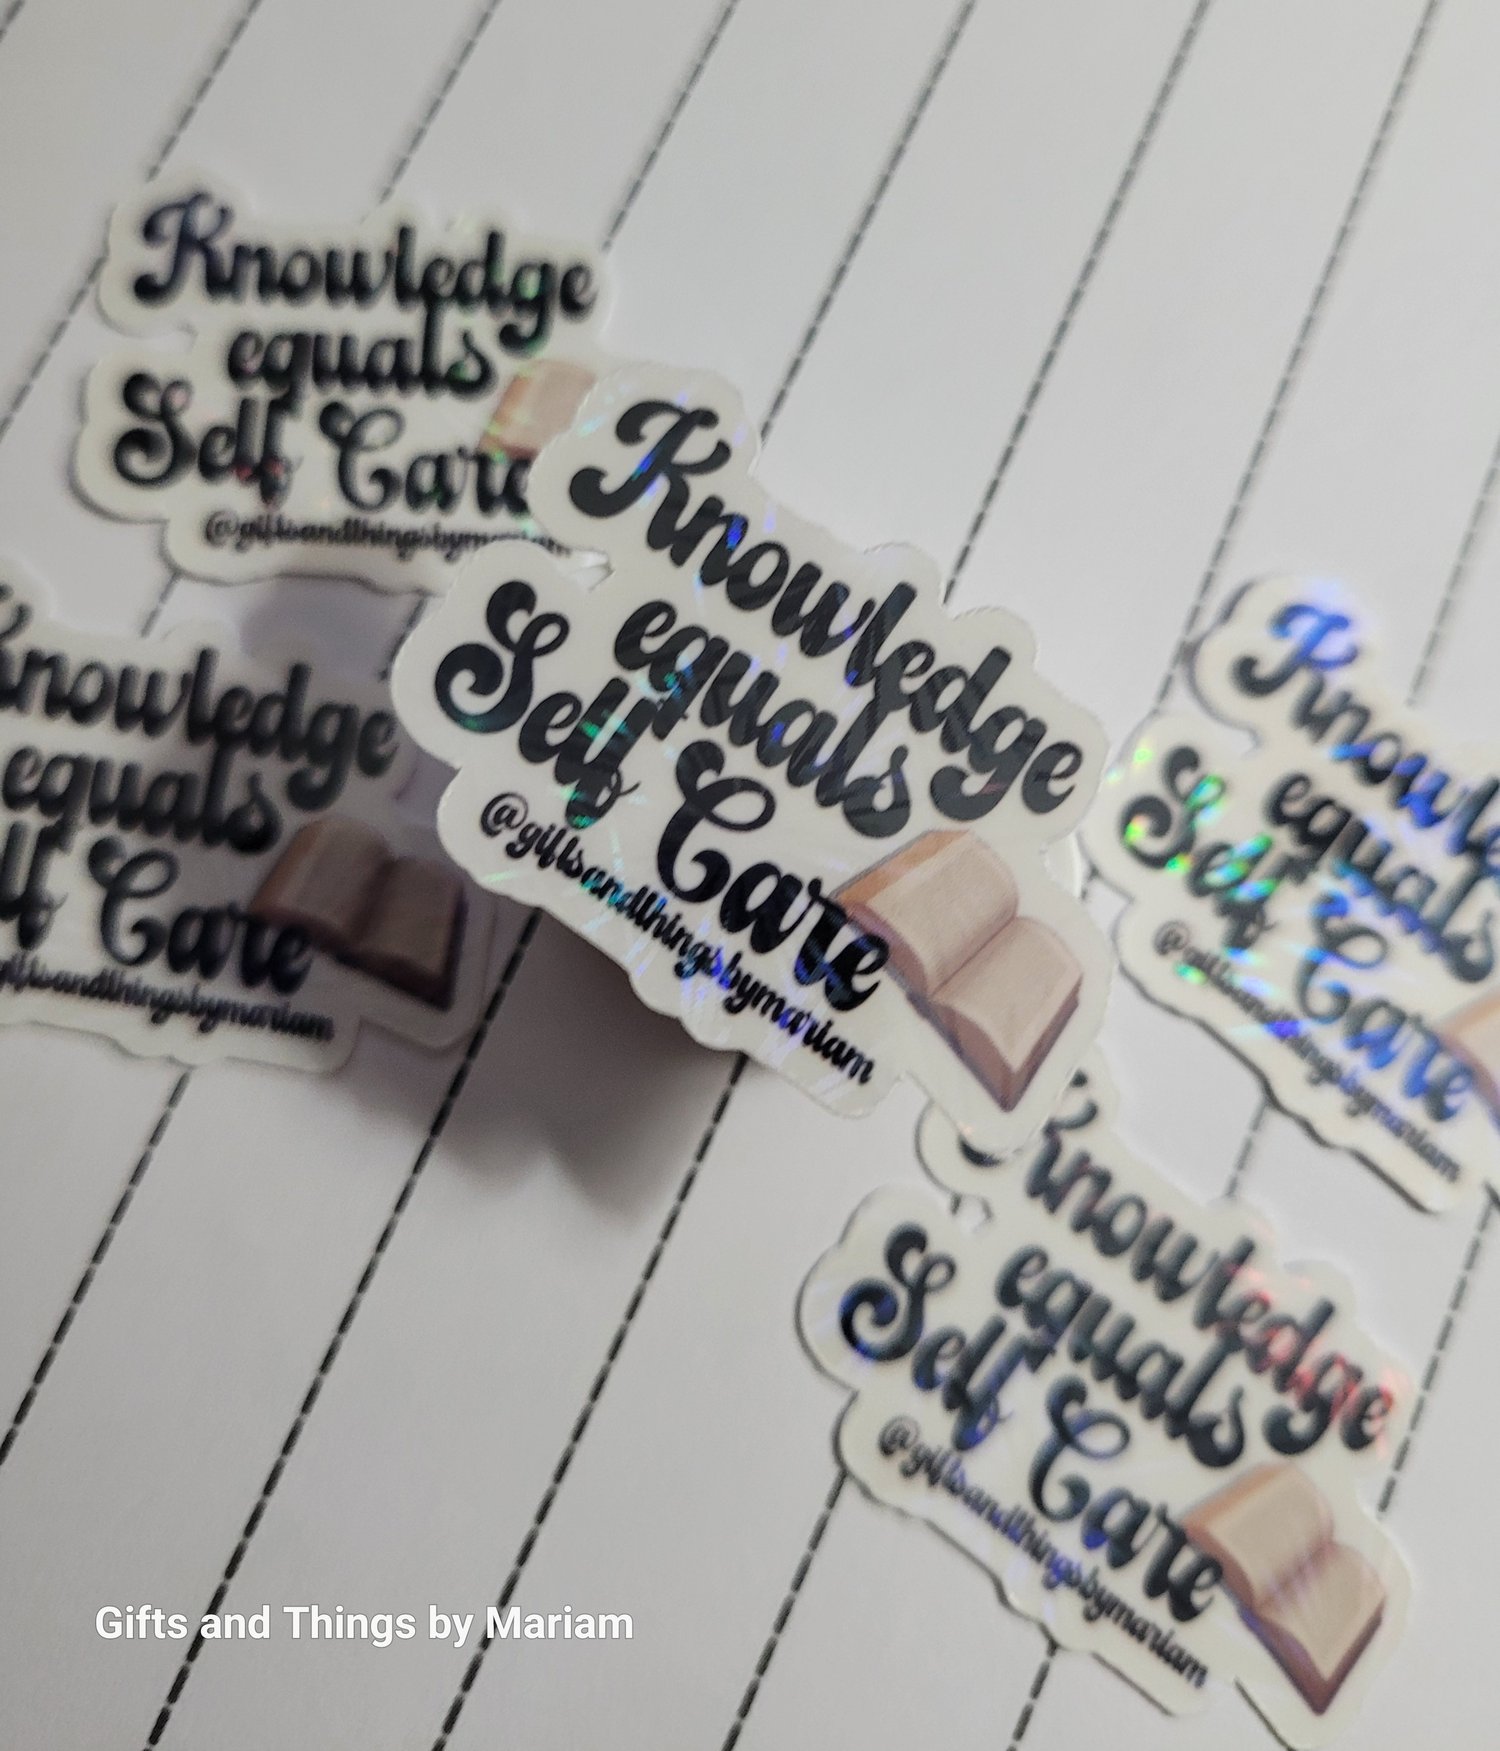 Knowledge
equals
Self Care
@giftsandthingsby
Knowledge
equals
Self Care
@giftsandthingsbymariam
nowledge
equals
lf Care
giftsandthingsbymariam
Knowle
equals
Self Care
@giftsandthingsbymariam
Knowledge
equals
Self Care
@giftsandthingsbymariam
Gifts and Things by Mariam